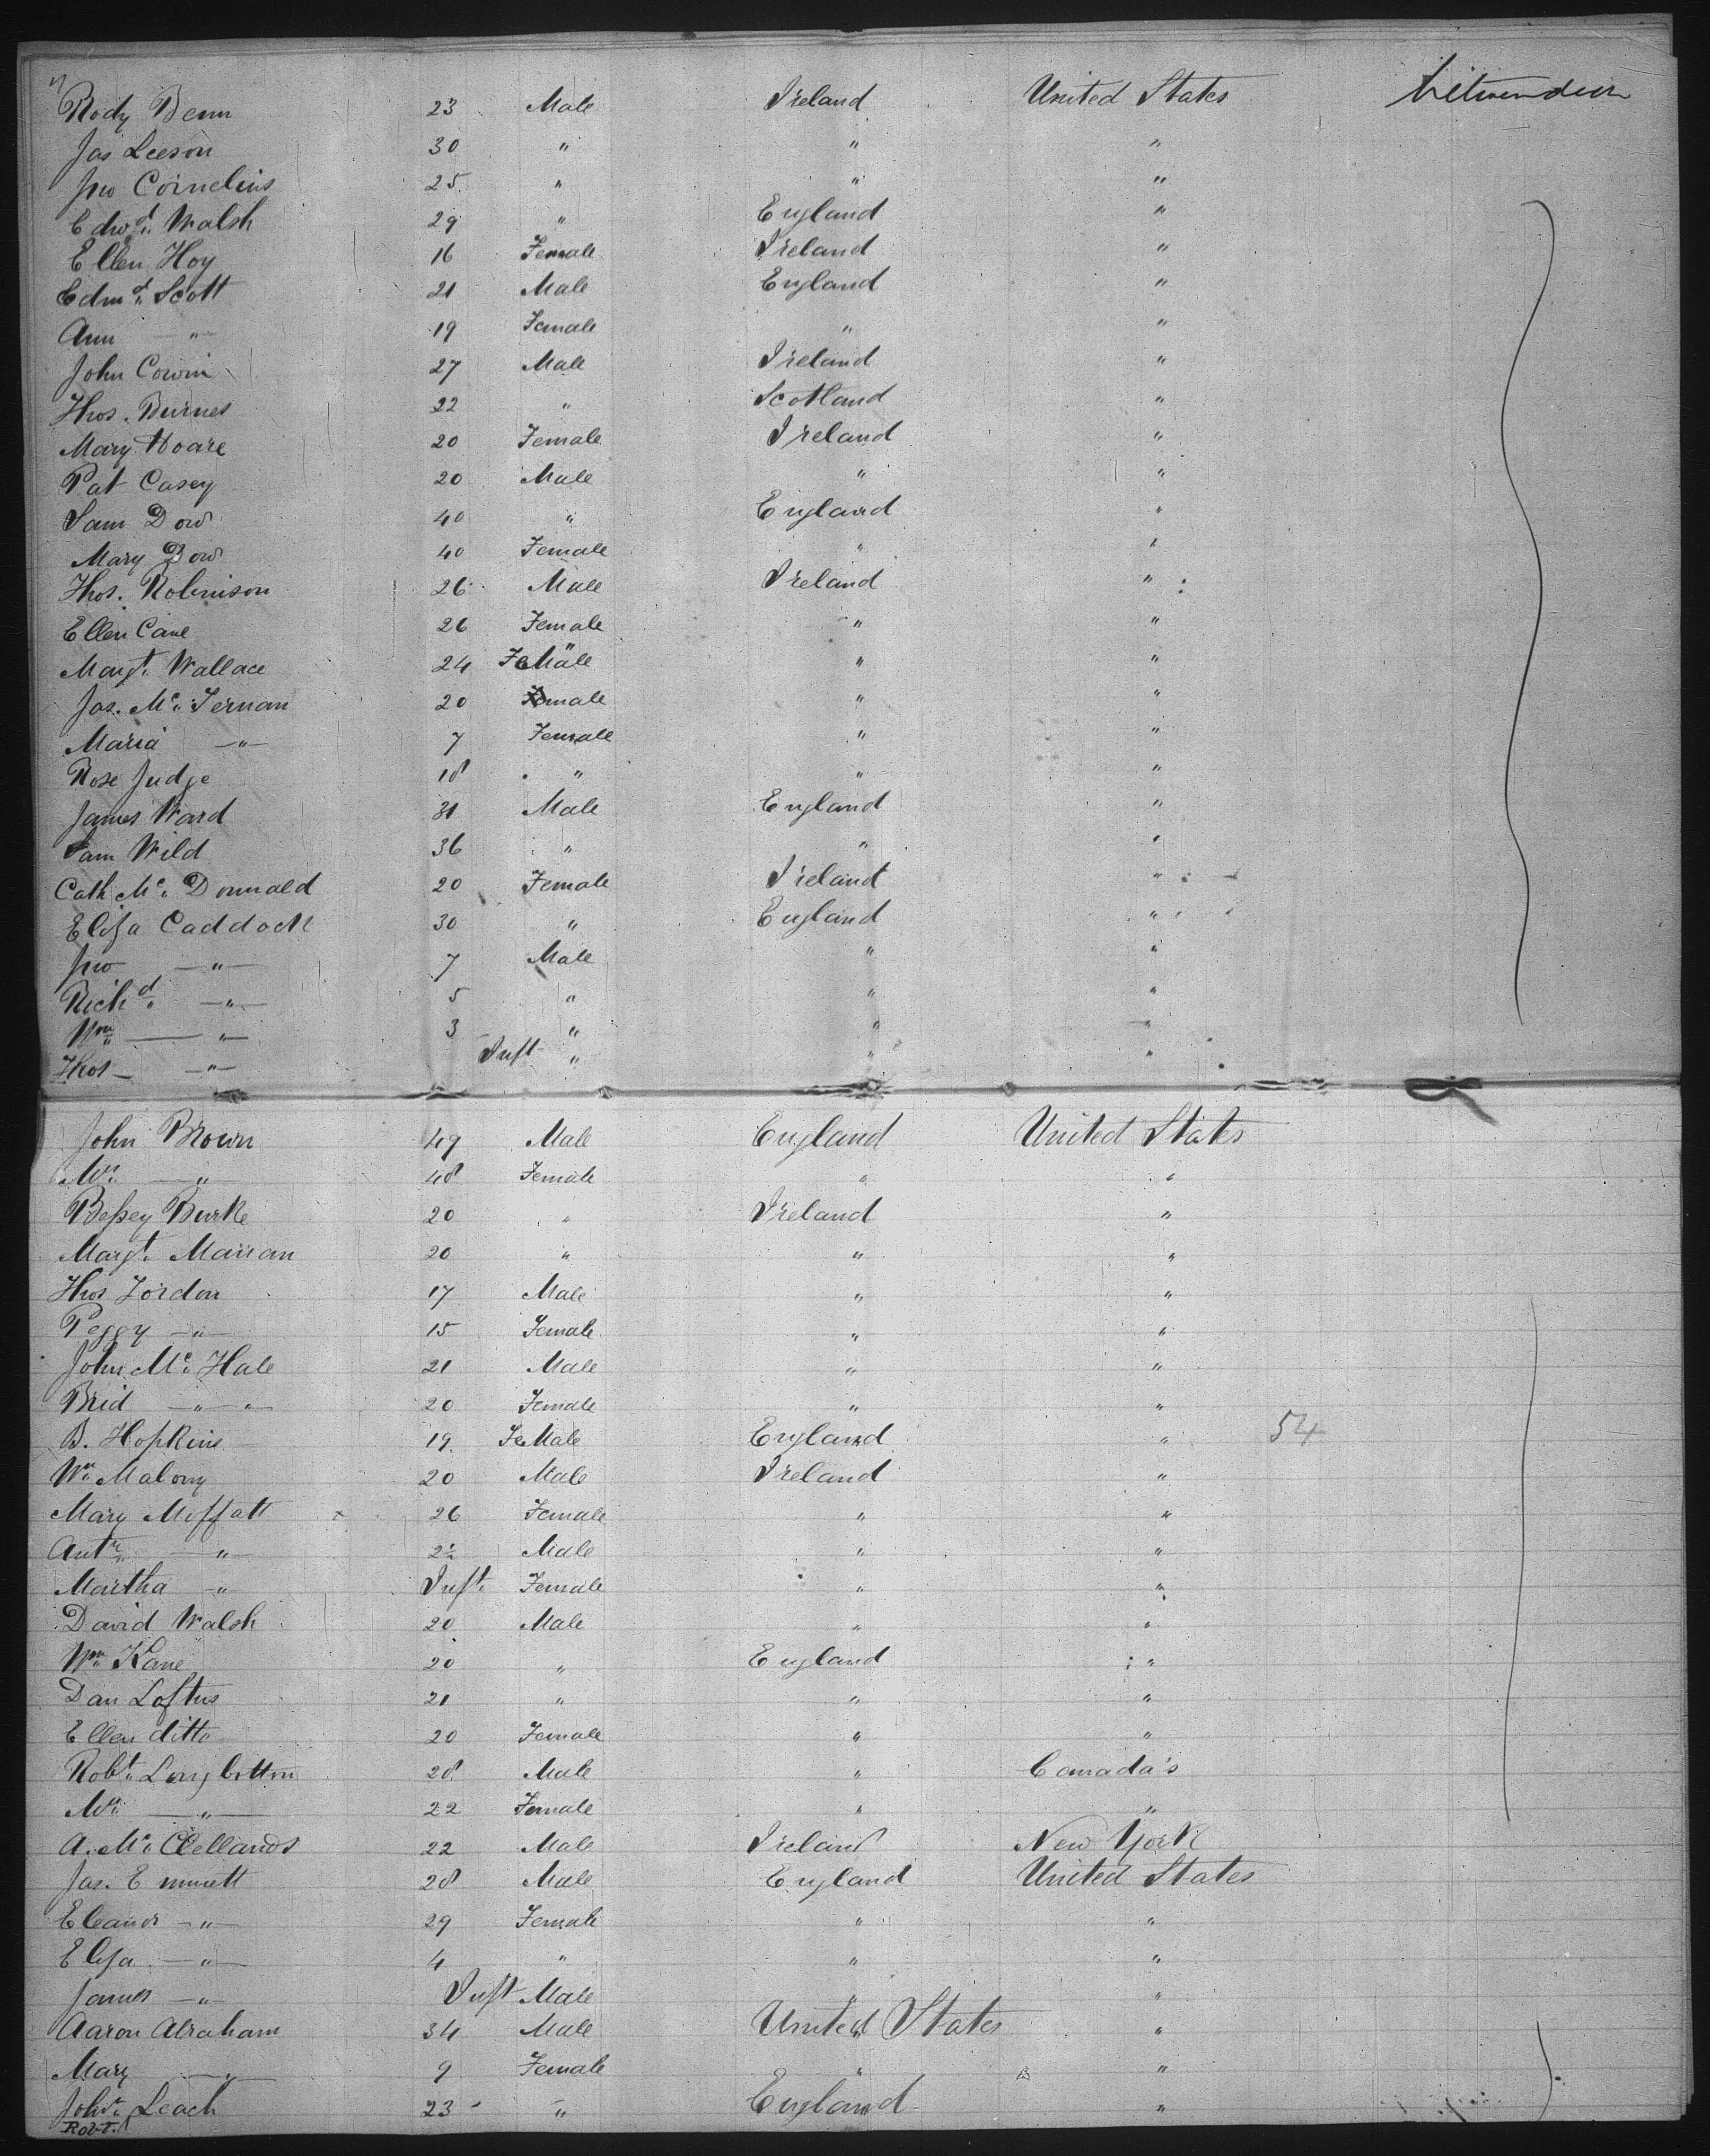 Rody Benn 23 Male Ireland United States
Jas Leeson 30 " " "
Jno Cornelius 25 " " "
Edwd. Walsh 29 " England "
Ellen Hoy 16 Female Ireland "
Edmd. Scott 21 Male England "
Ann — " — 19 Female " "
John Cowin 27 Male Ireland "
Thos. Burnes 22 " Scotland "
Mary Hoare 20 Female Ireland "
Pat Casey 20 Male " "
Sam Dow 40 " England "
Mary Dow 40 Female " "
Thos. Robinson 26 Male Ireland "
Ellen Cane 26 Female " "
Margt. Wallace 24 FeMale " "
Jas. Mc. Ternan 20 male " "
Maria — " — 7 Female " "
Rose Judge 18 " " "
James Ward 31 Male England "
Sam Wild 36 " " "
Cath Mc. Donnald 20 Female Ireland "
Eliza Caddock 30 " England "
Jno — " — 7 Male " "
Richd. — " — 5 " " "
Wm. — " — 3 " " "
Thos — " — Inft " " "
John Brown 49 Male England United States
Mrs. — " — 48 Female " "
Bessey Burke 20 " Ireland "
Margt. Marian 20 " " "
Thos Jordon 17 Male " "
Peggy — " — 15 Female " "
John Mc. Hale 21 Male " "
Brid — " — " 20 Female " "
B. Hopkins 19 FeMale England " 54
Wm. Malony 20 Male Ireland "
Mary Moffatt x 26 Female " "
Anty. — " — 2½ Male " "
Martha — " Inft. Female " "
David Walsh 20 Male " "
Wm. Kane 20 " England "
Dan Loftus 21 " " "
Ellen ditto 20 Female " "
Robt. Longbottom 28 Male " Canada's
Mrs. — " — 22 Female " "
A. Mc. Clellands 22 Male Ireland New York
Jas. Emmett 28 Male England United States
Eleanor — " — 29 Female " "
Eliza — " — 4 " " "
James — " — Inft Male " "
Aaron Abraham 34 Male United States "
Mary — " — 9 Female " "
Leach 23 " England "
Robt.